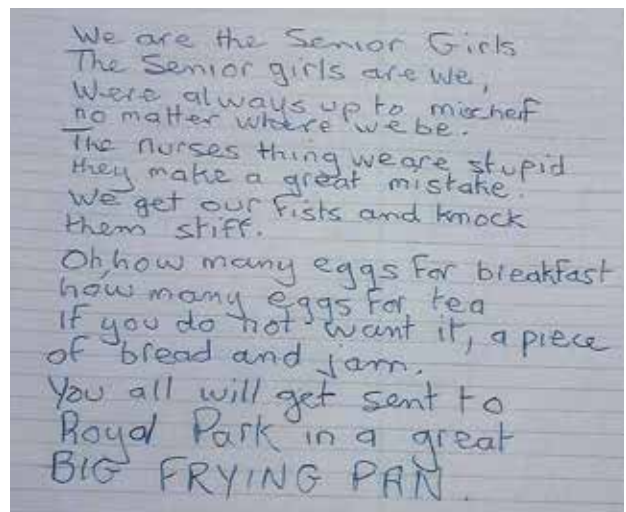 We are the Senior Girls
The Senior girls are we,
Were always up to mischeif
no matter where we be.
The nurses thing we are stupid
they make a great mistake.
We get our fists and knock
them stiff.
Oh, how many eggs for breakfast
how many eggs for tea
If you do not want it, a piece
of bread and jam.
You all will get sent to
Royal Park in a great
BIG FRYING PAN.